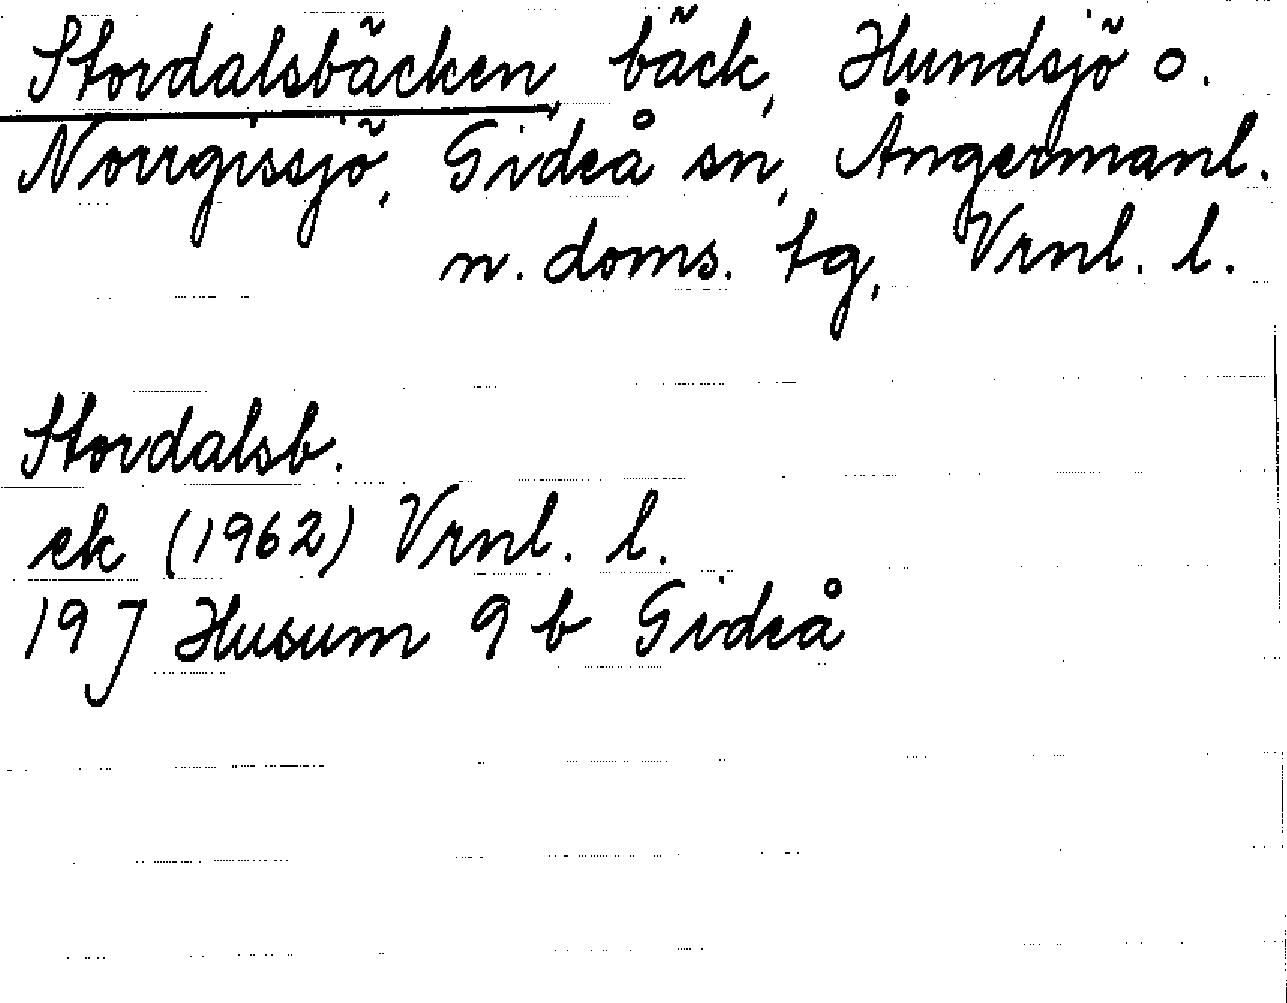 Stordalsbäcken, bäck, Hundsjö o.
Norrgissjö, Gideå sn, Ångermanl.
n. doms. tg, Vrnl. l.
Stordalsb.
ek (1962) Vrnl. l.
19 J Husum 9 b Gideå